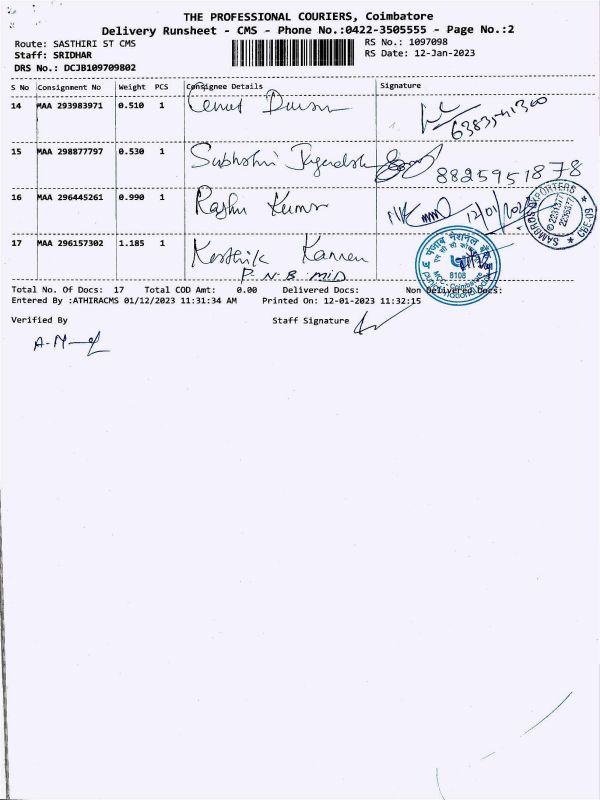 THE PROFESSIONAL COURIERS, Coimbatore
Delivery Runsheet - CMS - Phone No.:0422-3505555 - Page No.:2
Route: SASTHIRI ST CMS
RS No.: 1097098
Staff: SRIDHAR
RS Date: 12-Jan-2023
DRS No.: DCJB109709802
S No Consignment No Weight PCS Consignee Details Signature
14 MAA 293983971 0.510 1
15 MAA 298877797 0.530 1 8825951878
16 MAA 296445261 0.990 1 Raghu Kumar
17 MAA 296157302 1.185 1 Karthik
P.N.B. MID
SAMBROSO EXPORTERS
CBE-09
पंजाब नैशनल बैंक
8108
Total No. Of Docs: 17 Total COD Amt: 0.00 Delivered Docs: Non Delivered Docs:
Entered By :ATHIRACMS 01/12/2023 11:31:34 AM Printed On: 12-01-2023 11:32:15
Verified By Staff Signature